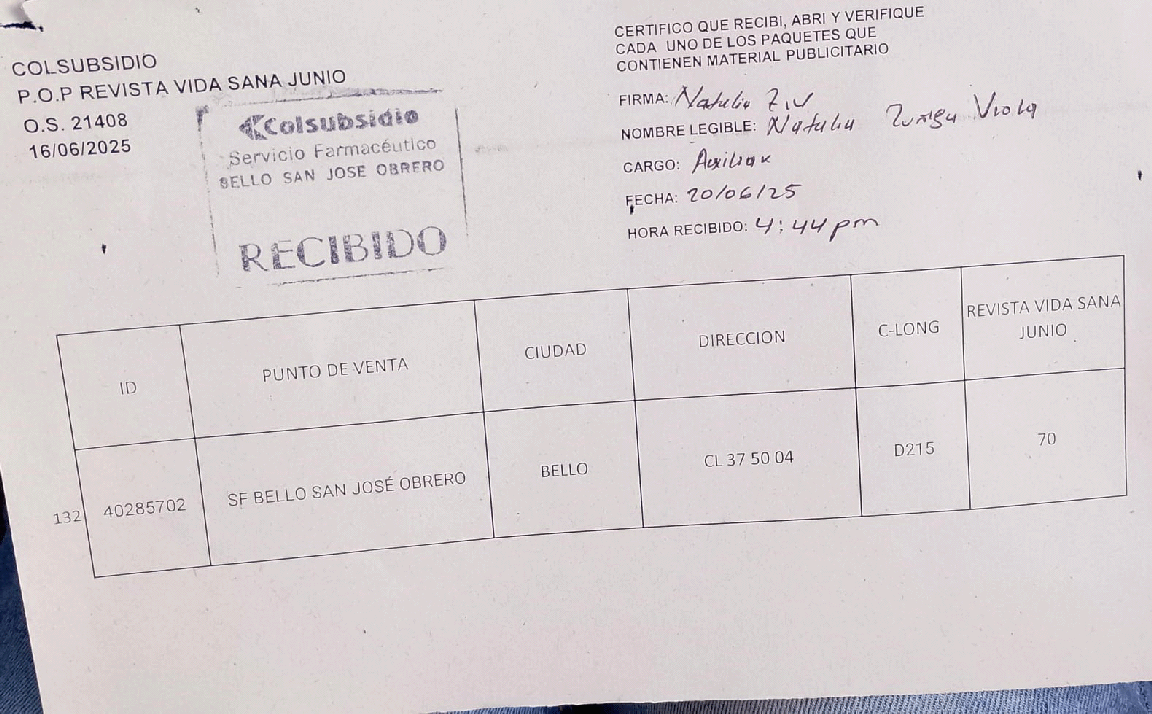 COLSUBSIDIO
P.O.P REVISTA VIDA SANA JUNIO
O.S. 21408
16/06/2025
Colsubsidio
Servicio Farmacéutico
BELLO SAN JOSE OBRERO
RECIBIDO
CERTIFICO QUE RECIBI, ABRI Y VERIFIQUE
CADA UNO DE LOS PAQUETES QUE
CONTIENEN MATERIAL PUBLICITARIO
FIRMA: Natalia Z.V
NOMBRE LEGIBLE: Natalia Viola
CARGO: Auxiliar
FECHA: 20/06/25
HORA RECIBIDO: 4:44 pm
ID PUNTO DE VENTA CIUDAD DIRECCION C-LONG REVISTA VIDA SANA JUNIO
132 40285702 SF BELLO SAN JOSÉ OBRERO BELLO CL 37 50 04 D215 70